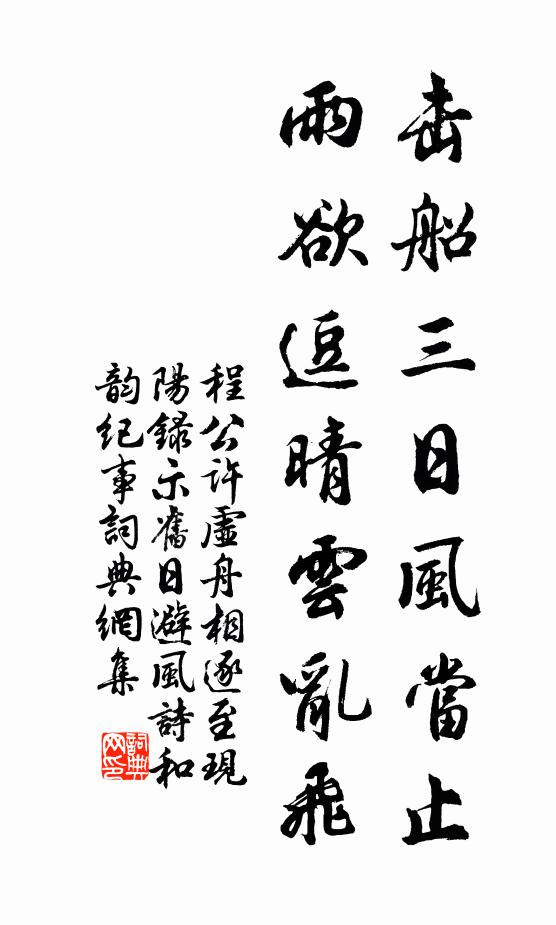 击船三日風當止
雨欲逗晴雲亂飛
程公許虛舟相逐至現
陽録示舊日避風詩和
韵紀事詞典網集
詞典
网印